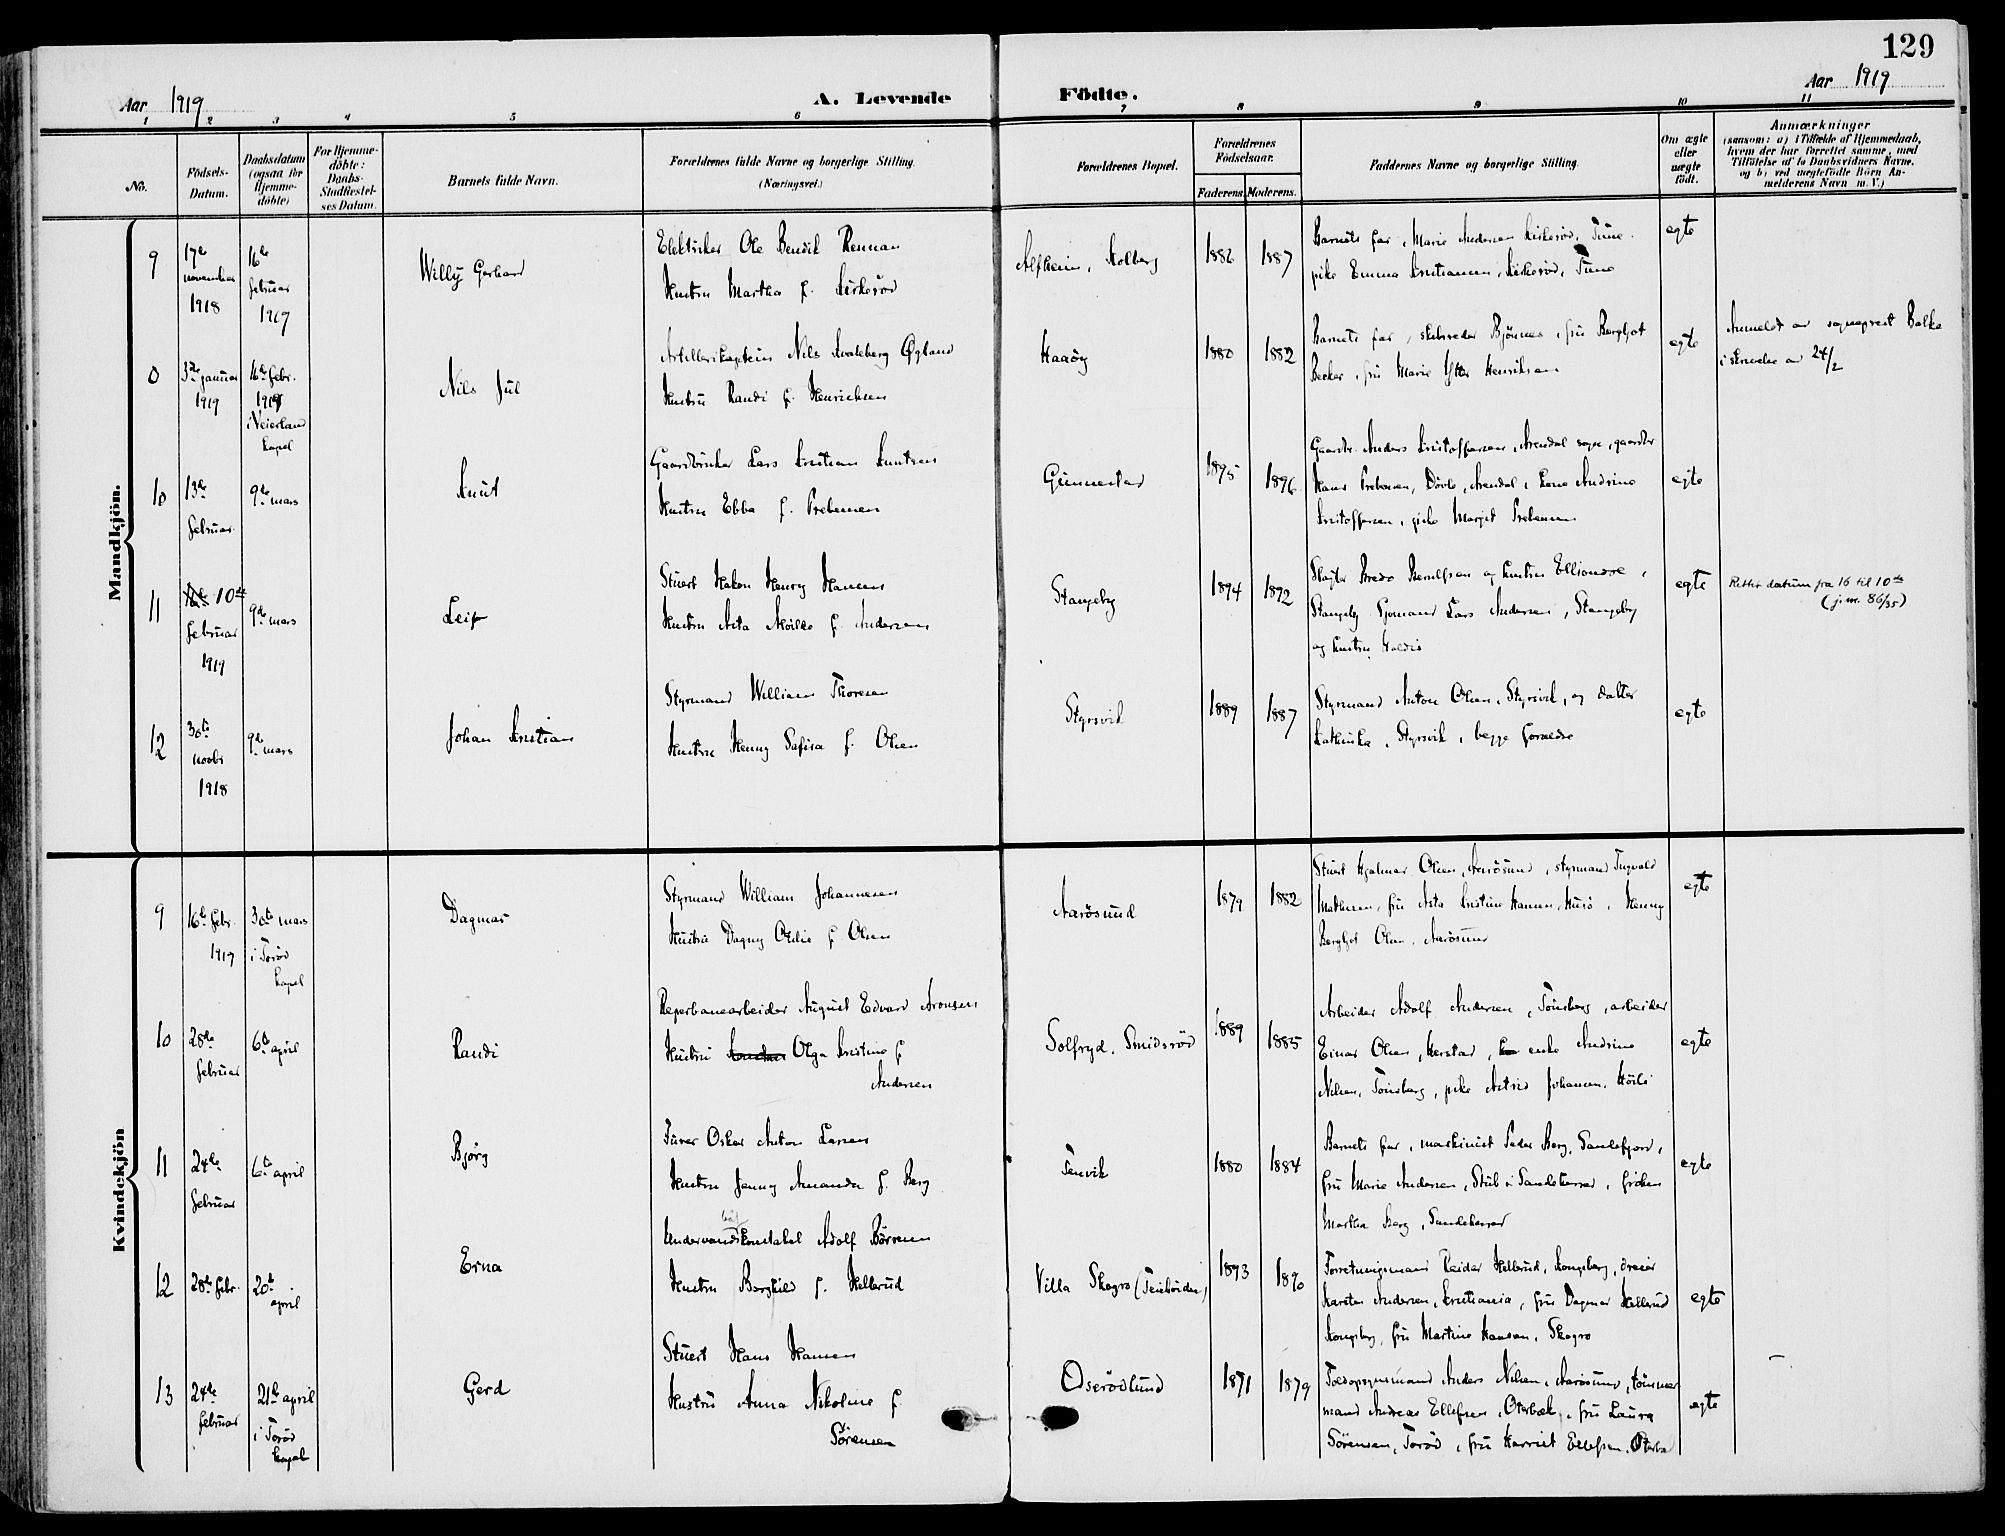 129
Aar 1919
A. Levende Födte.
Aar 1919
1 2 3 4 5 6 7 8 9 10 11
No.
Födsels-Datum.
Daabsdatum (ogsaa for Hjemme-döbte)
For Hjemme-döbte: Daabs-Stadfæstel-ses Datum.
Barnets fulde Navn.
Forældrenes fulde Navne og borgerlige Stilling. (Næringsvei.)
Forældrenes Bopæl.
Forældrenes Födselsaar.
Faderens. Moderens.
Faddernes Navne og borgerlige Stilling.
Om ægte eller uægte födt.
Anmærkninger
(saasom: a) i Tilfælde af Hjemmedaab, hvem der har forrettet samme, med Tilföielse af to Daabsvidners Navne, og b) ved uægtefödte Börn Anmelderens Navn m. V.)
Mandkjön.
9 17de november 1918
16de februar 1919
Willy Gerhard
Elektriker Ole Bendik Rennan
Hustru Martha f. Kirkesröd
Alfheim, Kolberg
1886 1887
Barnets far, Marie Andersen Kirkesröd, Tune
pike Emma Kristiansen, Kirkeröd, Tune
egte
0 3die januar 1919
16de febr. 1919 i Veierland kapel
Nils Jul
Artillerikaptein Nils Kvaleberg Øgland
Hustru Randi f. Henrichsen
Haaöy
1880 1882
Barnets far, skibsreder Bjönnes, fru Bergljot
Becker, fru Marie Ytter Henriksen
egte
Anmeldt av sogneprest Balke
i skrivelse av 24/2
10 13de februar
9de mars
Knut
Gaardbruker Lars Kristian Knutsen
Hustru Ebba f. Prebensen
Gunnestad
1895 1896
Gaardbr. Anders Kristoffersen, Arendal sogn, gaardbr
Hans Prebensen, Arendal, Lene Andrine
Kristoffersen, pike Margit Prebensen
egte
11 16de 10de februar 1919
9de mars
Leif
Stuert Hakon Henry Hansen
Hustru Asta f. Andersen
Stangeby
1894 1892
Bredo og hustru Ellionore,
Stangeby, Sjömand Lars Andersen, Stangeby
og hustru Haldis
egte
Rettet datum fra 16 til 10de
(j.nr. 86/35)
12 30te novbr 1918
9de mars
Johan Kristian
Styrmand William Thoresen
Hustru Henny Safira f. Olsen
Styrsvik
1889 1887
Styrmand Anton Olsen, Styrsvik, og datter
Kathinka, Styrsvik, begge forældre
egte
Kvindekjön
9 16de febr. 1919
30te mars i Torød kapel
Dagmar
Styrmand William Johannesen
Hustru Dagny Otilie f. Olsen
Aarösund
1879 1882
Stuert Hjalmar Olsen, Aarösund, styrmand Ingvald
Mathisen, fru Asta Kristine Hansen, Husö, Henny
Bergljot Olsen, Aarösund
egte
10 28de februar
6te april
Randi
Reperbanearbeider August Edvard Aronsen
Hustru Olga Kristine f
Andersen
Solfryd, Smidsröd
1889 1885
Arbeider Adolf Andersen, Tönsberg, arbeider
Einar Olsen, Herstad, enke Andrine
Nilsen, Tönsberg, pike Astrid Johansen,
egte
11 24de februar
6te april
Bjørg
Furer Oskar Anton Larsen
Hustru Jenny Amanda f. Berg
Tenvik
1880 1884
Barnets far, maskinist Peder Berg, Sandefjord,
fru Marie Andersen, Stub i Sandeherred, fröken
Martha Berg, Sandeherred
egte
12 28de febr.
20de april
Erna
Undervandsbaatkonstabel Adolf Børresen
Hustru Borghild f. Hellerud
Villa Skogro (Teiehöiden)
1893 1890
Forretningsmand Reidar Hellerud, Kongsberg, dreier
Karsten Andersen, Kristiania, fru Dagmar Hellerud
Kongsberg, fru Martine Hansen, Skogro
egte
13 24de februar
21de april i Torød kapel
Gerd
Stuert Hans Hansen
Hustru Anna Nikoline f.
Sörensen
Oserödlund
1871 1879
Toldopsynsmand Anders Nilsen, Aarösund, tömmer
mand Andreas Ellefsen, Oterbæk, fru Laura
Sörensen, Torød, fru Harriet Ellefsen, Oterbæ
egte